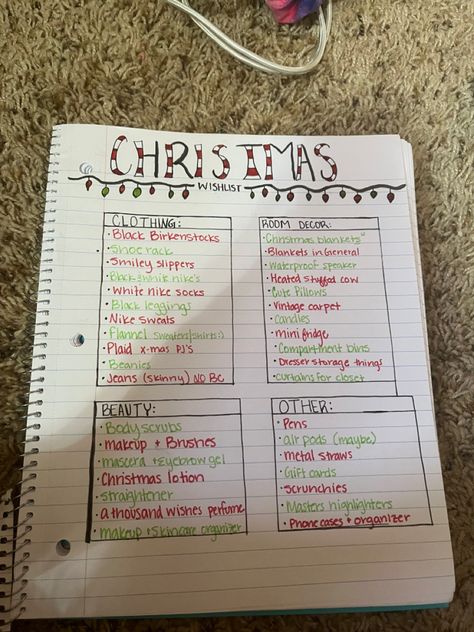 CHRISTMAS
WISHLIST
CLOTHING:
• Black Birkenstocks
• Shoe rack
• Smiley slippers
• Black & white nike's
• White nike socks
• Black leggings
• Nike sweats
• Flannel sweaters/shirts:)
• Plaid x-mas PJ's
• Beanies
• Jeans (skinny) NO BC
ROOM DECOR:
• Christmas blankets"
• Blankets in General
• Waterproof speaker
• Heated stuffed cow
• Cute Pillows
• Vintage carpet
• Candles
• mini fridge
• Compartment bins
• Dresser storage things
• curtains for closet
BEAUTY:
• Body scrubs
• makeup + Brushes
• mascera + eyebrow gel
• Christmas lotion
• straightener
• a thousand wishes perfume
• makeup + Skincare organizer
OTHER:
• Pens
• air pods (maybe)
• metal straws
• Gift cards
• scrunchies
• Masters highlighters
• Phone cases + organizer